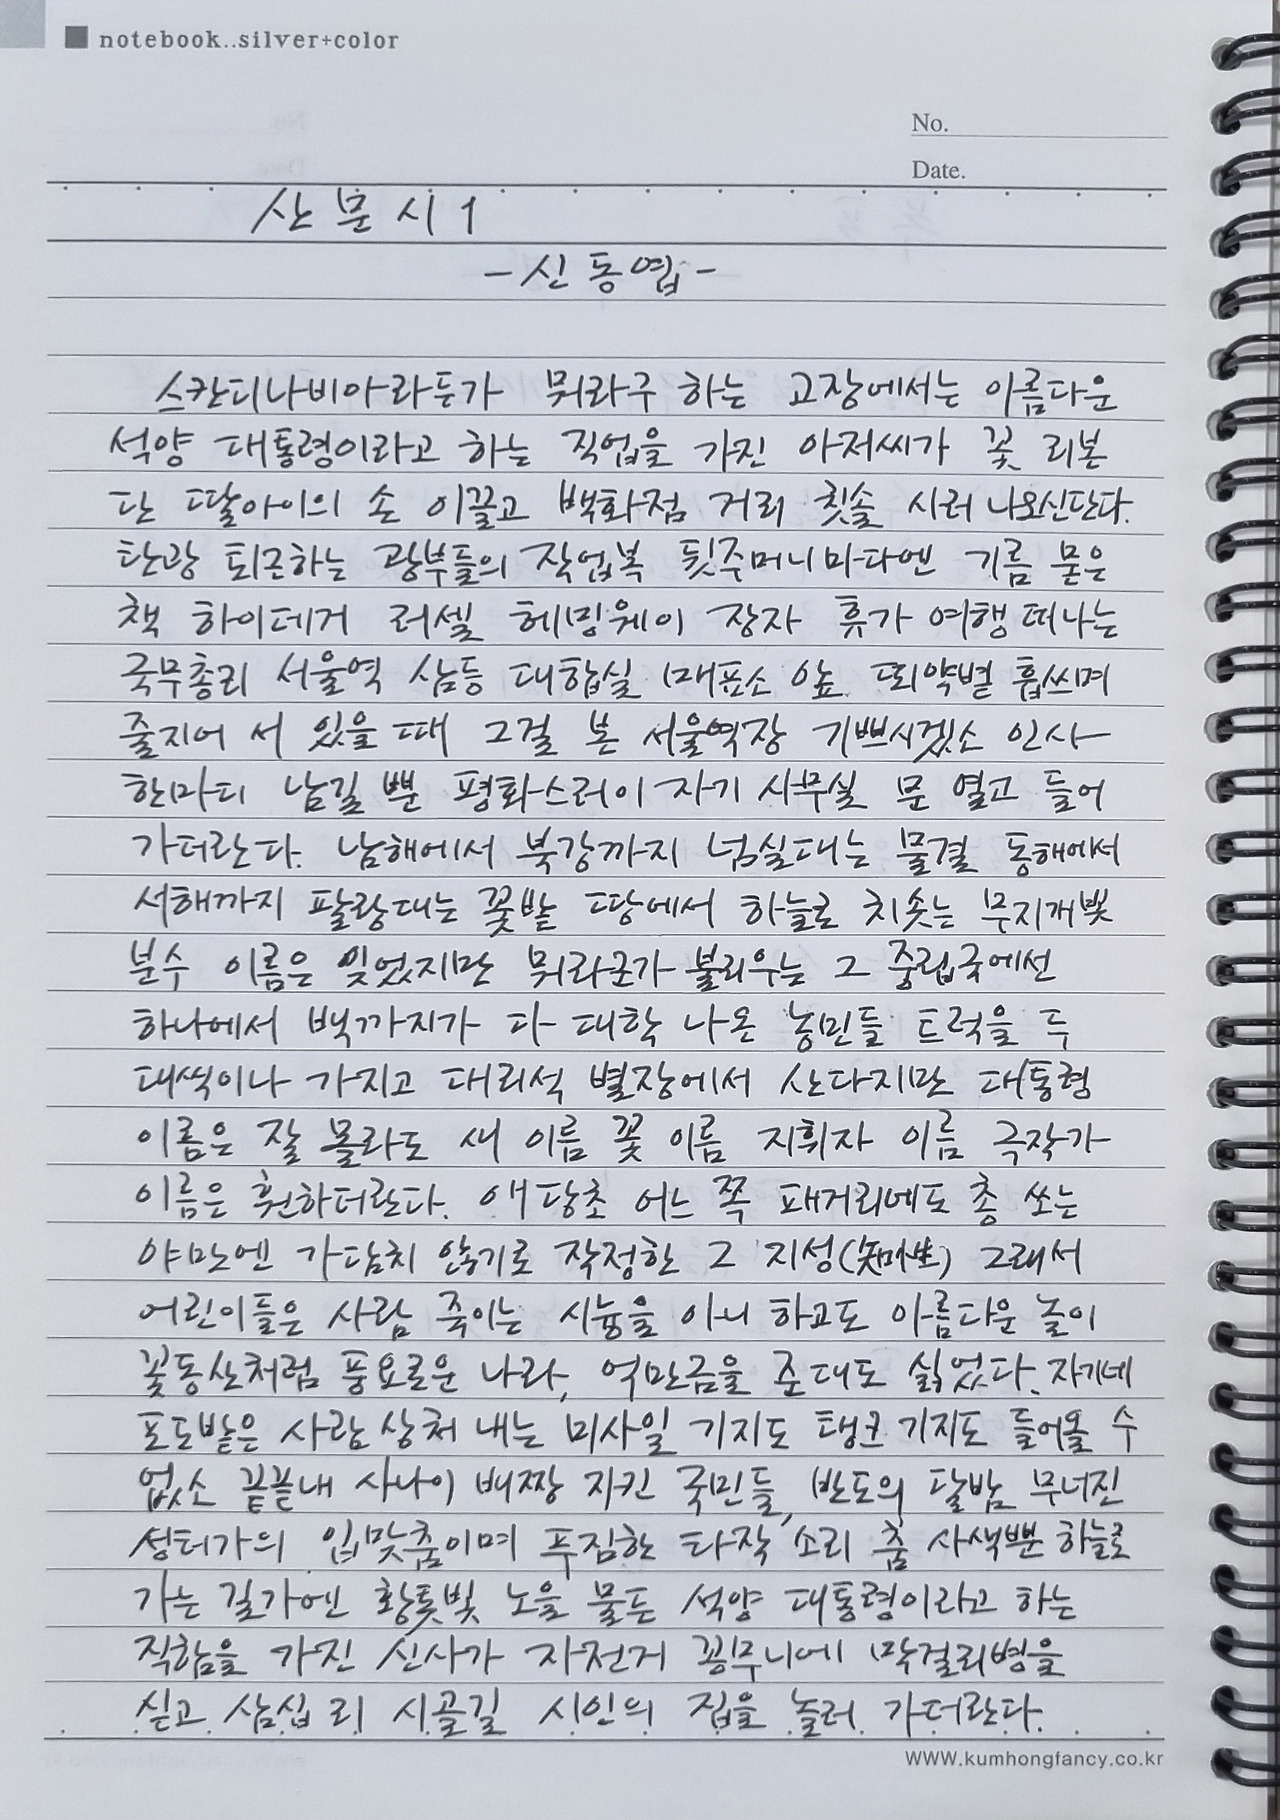 notebook..silver+color
No.
Date.
산문시 1
- 신동엽 -
스칸디나비아라든가 뭐라구 하는 고장에서는 아름다운
석양 대통령이라고 하는 직업을 가진 아저씨가 꽃 리본
단 딸아이의 손 이끌고 백화점 거리 칫솔 사러 나오신단다.
탄광 퇴근하는 광부들의 작업복 뒷주머니마다엔 기름 묻은
책 하이데거 러셀 헤밍웨이 장자 휴가 여행 떠나는
국무총리 서울역 삼등 대합실 매표소 앞 뙤약볕 흡쓰며
줄지어 서 있을 때 그걸 본 서울역장 기쁘시겠소 인사
한마디 남길 뿐 평화스러이 자기 사무실 문 열고 들어
가더란다. 남해에서 북강까지 넘실대는 물결 동해에서
서해까지 팔랑대는 꽃밭 땅에서 하늘로 치솟는 무지개빛
분수 이름은 잊었지만 뭐라군가 불리우는 그 중립국에선
하나에서 백까지가 다 대학 나온 농민들 트럭을 두
대씩이나 가지고 대리석 별장에서 산다지만 대통령
이름은 잘 몰라도 새 이름 꽃 이름 지휘자 이름 극작가
이름은 훤하더란다. 애당초 어느 쪽 패거리에도 총 쏘는
야만엔 가담치 않기로 작정한 그 지성(知性) 그래서
어린이들은 사람 죽이는 시늉을 아니 하고도 아름다운 놀이
꽃동산처럼 풍요로운 나라, 억만금을 준대도 싫었다. 자기네
포도밭은 사람 상처 내는 미사일 기지도 탱크 기지도 들어올 수
없소 끝끝내 사나이 배짱 지킨 국민들, 반도의 달밤 무너진
성터가의 입맞춤이며 푸짐한 타작 소리 춤 사색뿐 하늘로
가는 길가엔 황톳빛 노을 물든 석양 대통령이라고 하는
직함을 가진 신사가 자전거 꽁무니에 막걸리병을
싣고 삼십 리 시골길 시인의 집을 놀러 가더란다.
WWW.kumhongfancy.co.kr